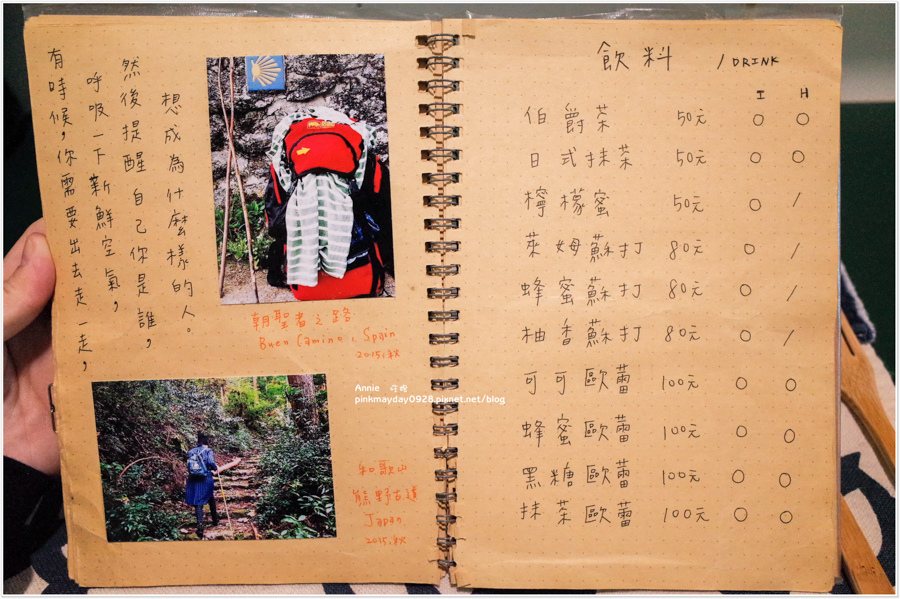 有時候，你需要出去走一走，
呼吸一下新鮮空氣，
然後提醒自己你是誰，
想成為什麼樣的人。
朝聖者之路
Buen Camino, Spain
2015,秋
Annie
pinkmayday0928.pixnet.net/blog
和歌山
熊野古道
Japan
2015,秋
飲料 / DRINK
I H
伯爵茶 50元 ○ ○
日式抹茶 50元 ○ ○
檸檬蜜 50元 ○ /
萊姆蘇打 80元 ○ /
蜂蜜蘇打 80元 ○ /
柚香蘇打 80元 ○ /
可可歐蕾 100元 ○ ○
蜂蜜歐蕾 100元 ○ ○
黑糖歐蕾 100元 ○ ○
抹茶歐蕾 100元 ○ ○